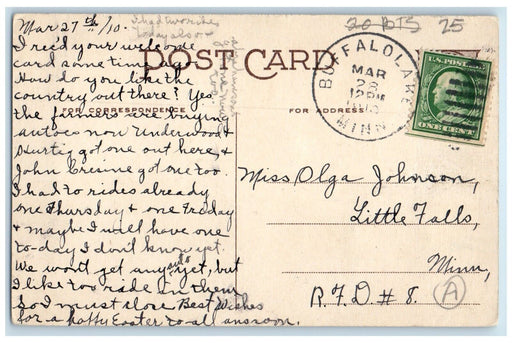 20 PTS 25
Mar 27th/10.
I had two rides
today also
POST CARD
FOR CORRESPONDENCE
FOR ADDRESS
BUFFALO LAKE
MAR
28
12PM
1910
MINN
U.S. POSTAGE
ONE CENT
I rec'd your welcome
card some time
How do you like the
country out there? Yes
the farmers are buying
autoes now Underwood &
Hurtig got one out here, &
John got one too.
I had to rides already
one Thursday & one Friday
& maybe I will have one
to-day I don't know yet.
We won't get any auto yet, but
I like too ride in them
So I must close Best Wishes
for a happy Easter to all ans soon.
Miss Olga Johnson,
Little Falls,
Minn,
R.F.D # 8.
A